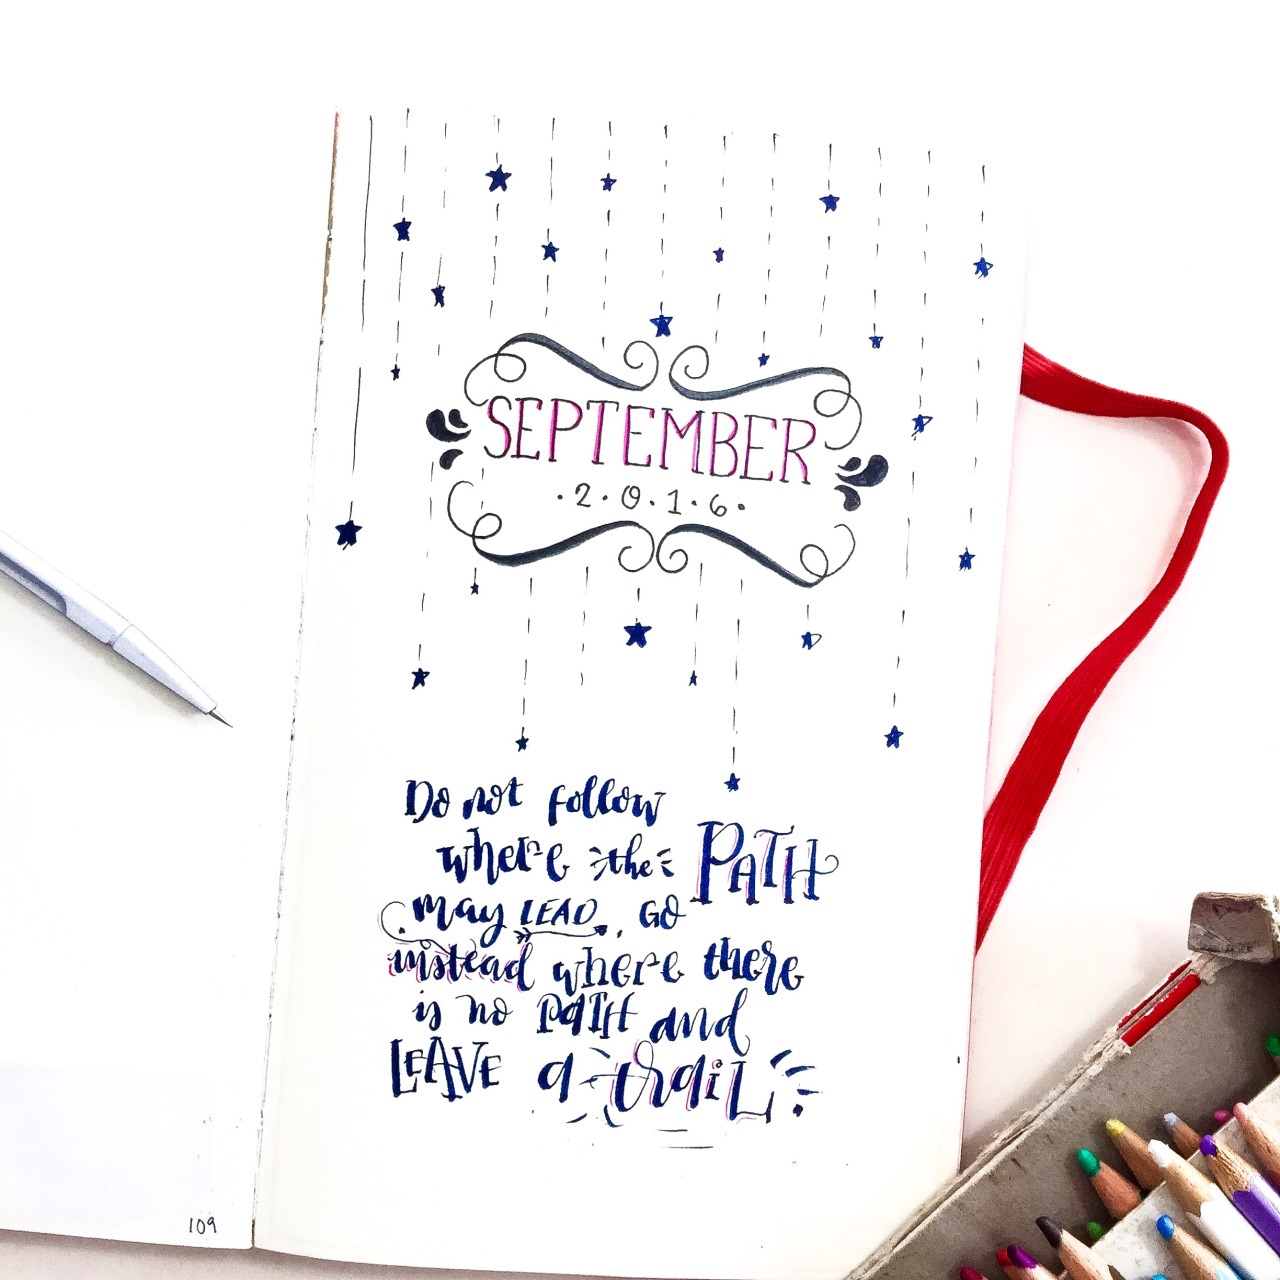 SEPTEMBER
·2·0·1·6·
Do not follow
where the PATH
may LEAD, GO
instead where there
is no PATH and
LEAVE a trail.
109